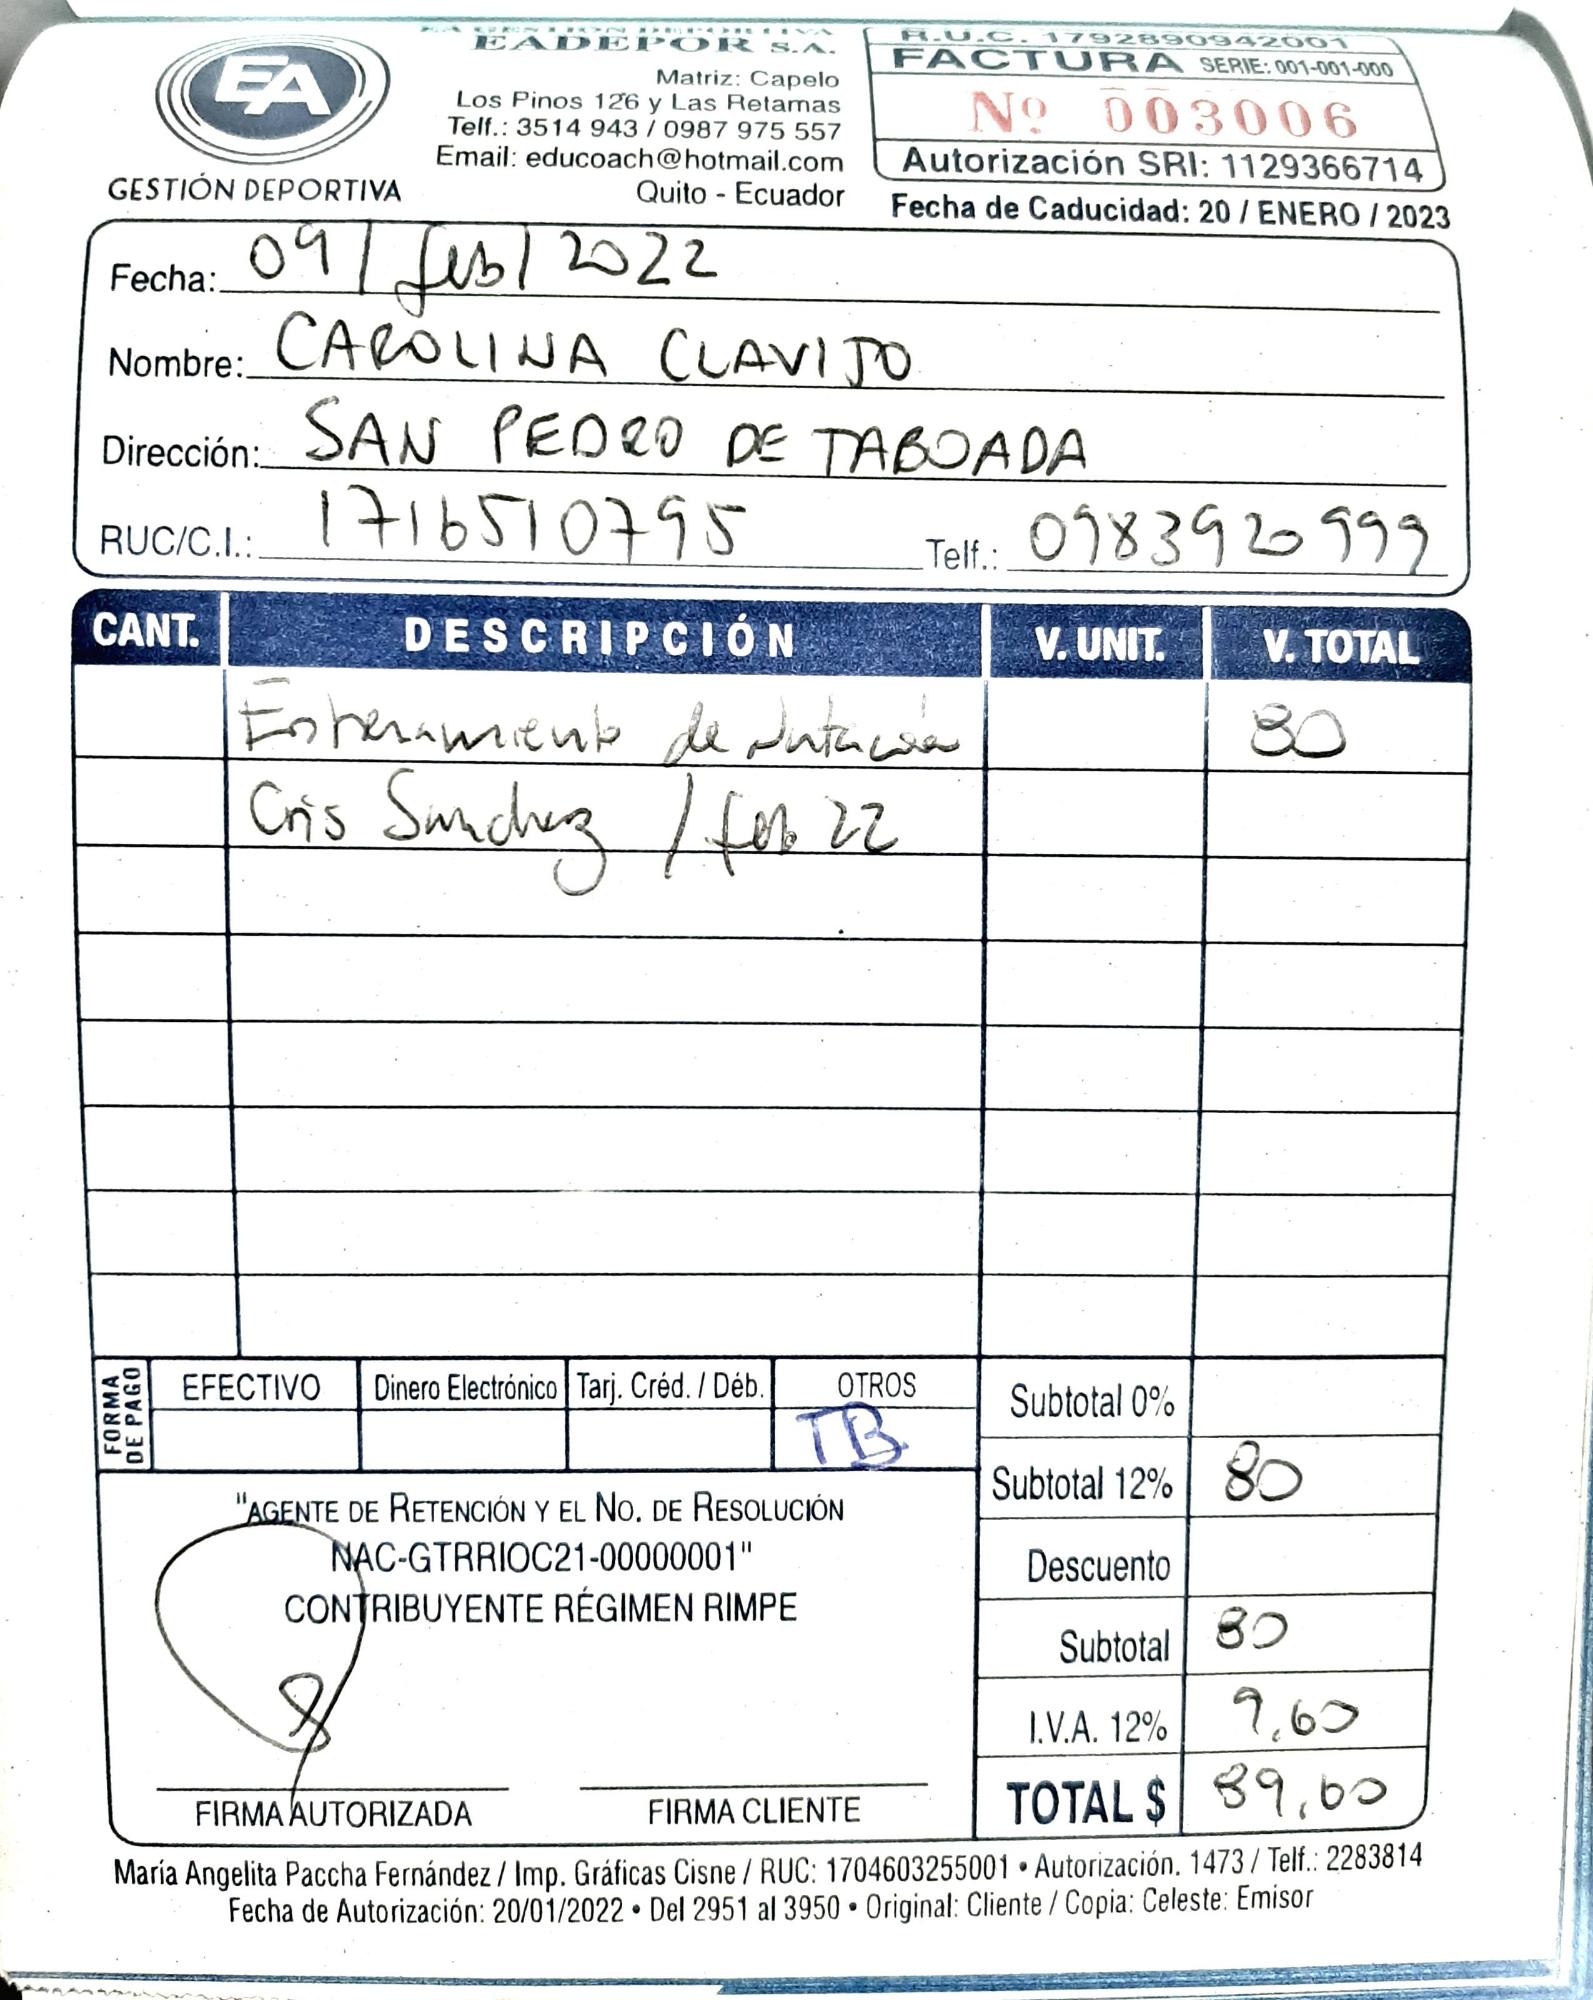 EA GESTIÓN DEPORTIVA
EADEPOR S.A.
Matriz: Capelo
Los Pinos 126 y Las Retamas
Telf.: 3514 943 / 0987 975 557
Email: educoach@hotmail.com
Quito - Ecuador
EA
GESTIÓN DEPORTIVA
R.U.C. 1792890942001
FACTURA SERIE: 001-001-000
Nº 003006
Autorización SRI: 1129366714
Fecha de Caducidad: 20 / ENERO / 2023
Fecha: 09 / feb / 2022
Nombre: CAROLINA CLAVIJO
Dirección: SAN PEDRO DE TABOADA
RUC/C.I.: 1716510795 Telf.: 0983920999
CANT. DESCRIPCIÓN V. UNIT. V. TOTAL
Entrenamiento de Natación 80
Cris Sanchez / feb 22
FORMA DE PAGO
EFECTIVO Dinero Electrónico Tarj. Créd. / Déb. OTROS
TB
Subtotal 0%
Subtotal 12% 80
Descuento
Subtotal 80
I.V.A. 12% 9,60
TOTAL $ 89,60
"AGENTE DE RETENCIÓN Y EL NO. DE RESOLUCIÓN
NAC-GTRRIOC21-00000001"
CONTRIBUYENTE RÉGIMEN RIMPE
FIRMA AUTORIZADA FIRMA CLIENTE
María Angelita Paccha Fernández / Imp. Gráficas Cisne / RUC: 1704603255001 • Autorización. 1473 / Telf.: 2283814
Fecha de Autorización: 20/01/2022 • Del 2951 al 3950 • Original: Cliente / Copia: Celeste: Emisor